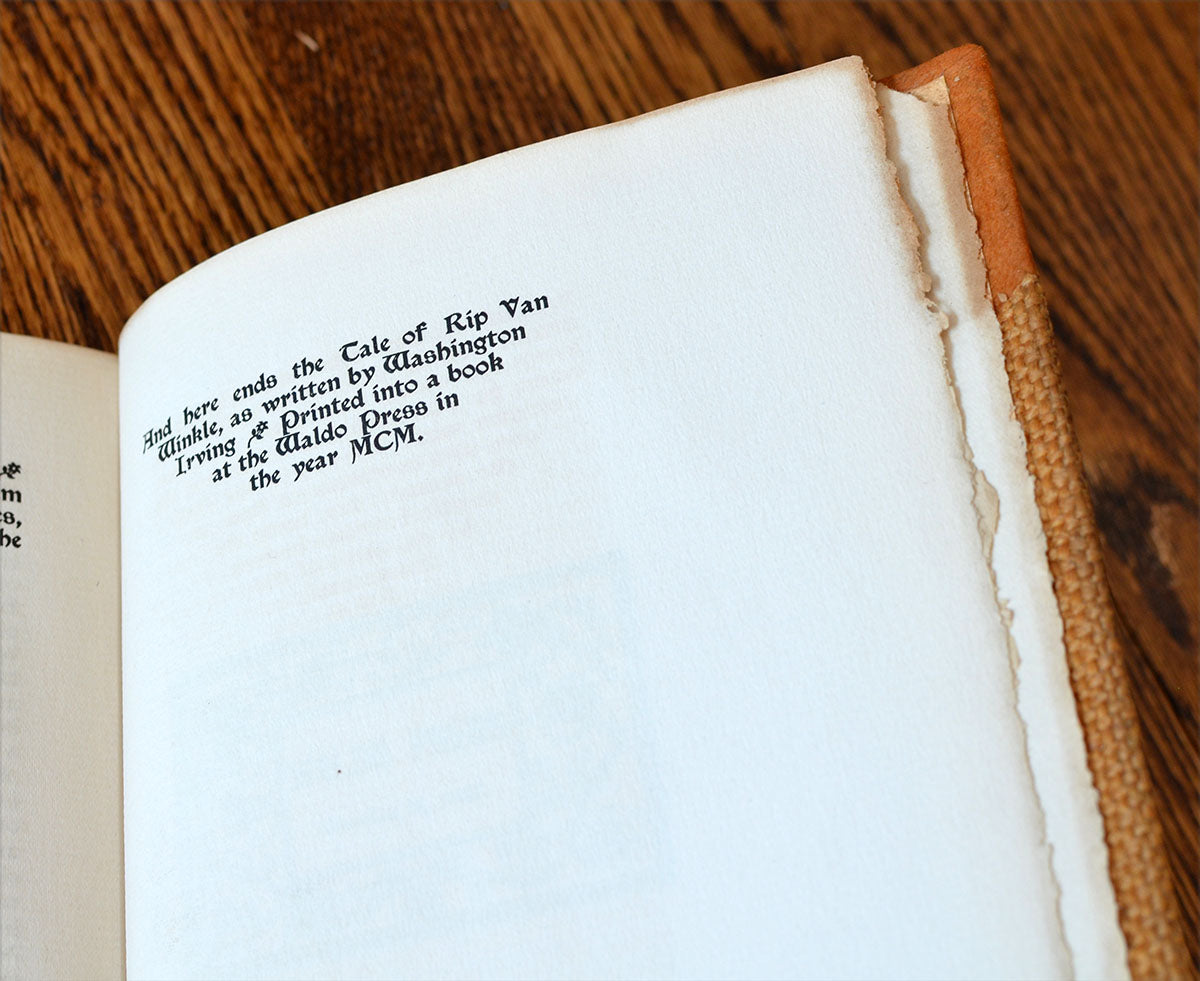 m
s,
he
And here ends the Tale of Rip Van
Winkle, as written by Washington
Irving Printed into a book
at the Waldo Press in
the year MCM.